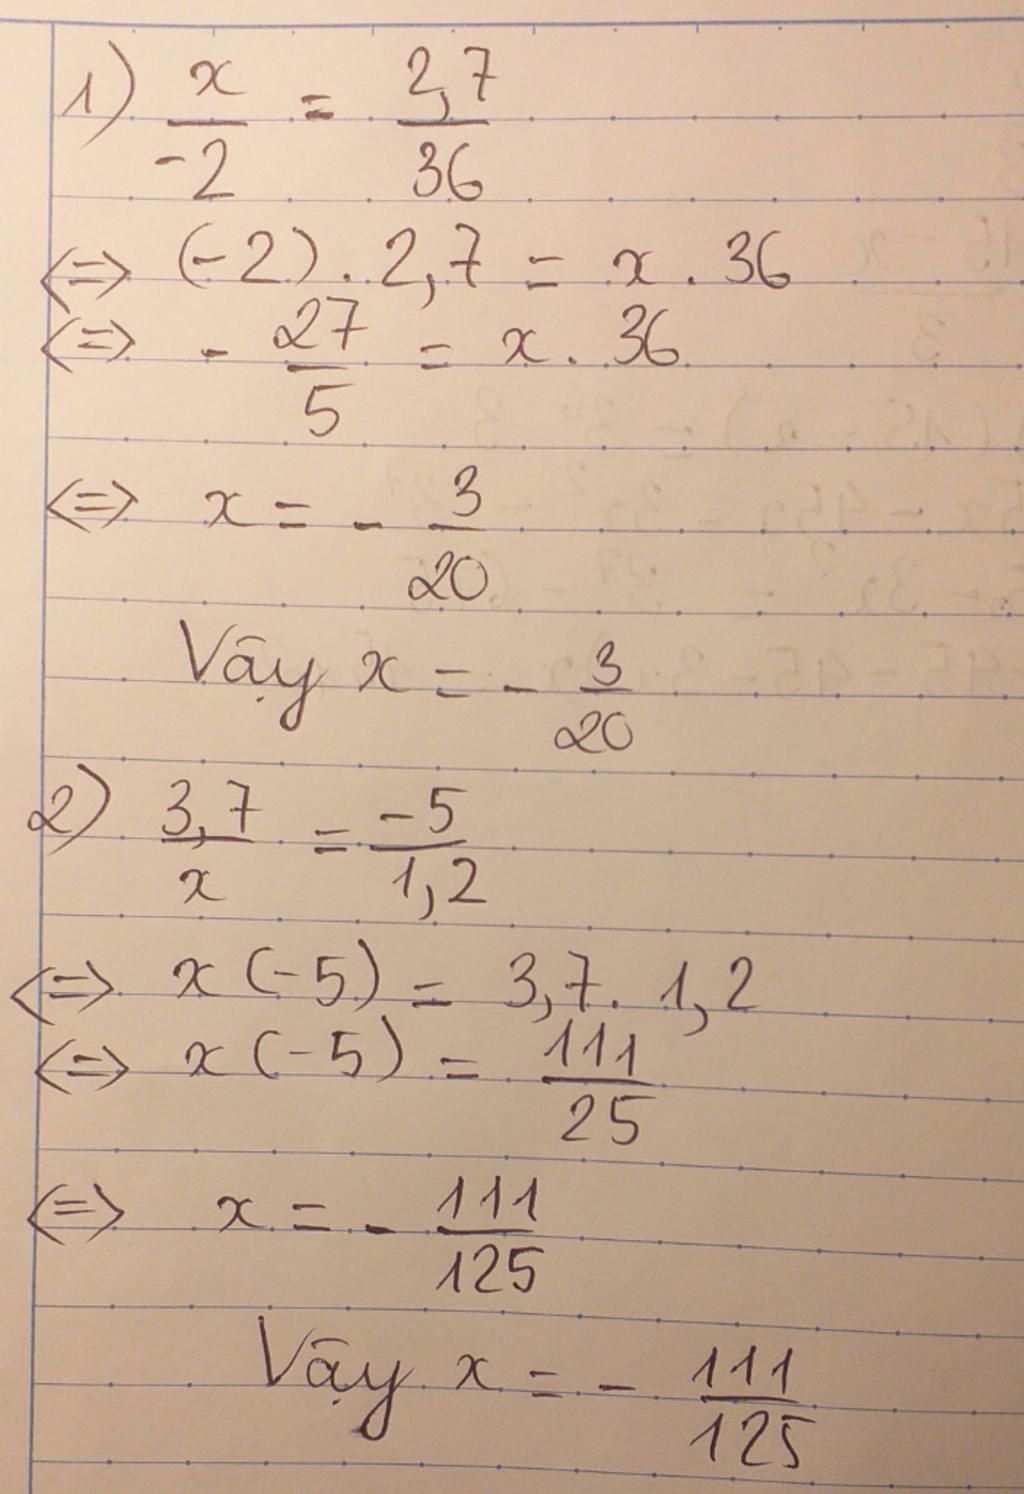 1) x/-2 = 2,7/36
<=> (-2) . 2,7 = x . 36
<=> - 27/5 = x . 36
<=> x = - 3/20
Vậy x = - 3/20
2) 3,7/x = -5/1,2
<=> x (-5) = 3,7 . 1,2
<=> x (-5) = 111/25
<=> x = - 111/125
Vậy x = - 111/125